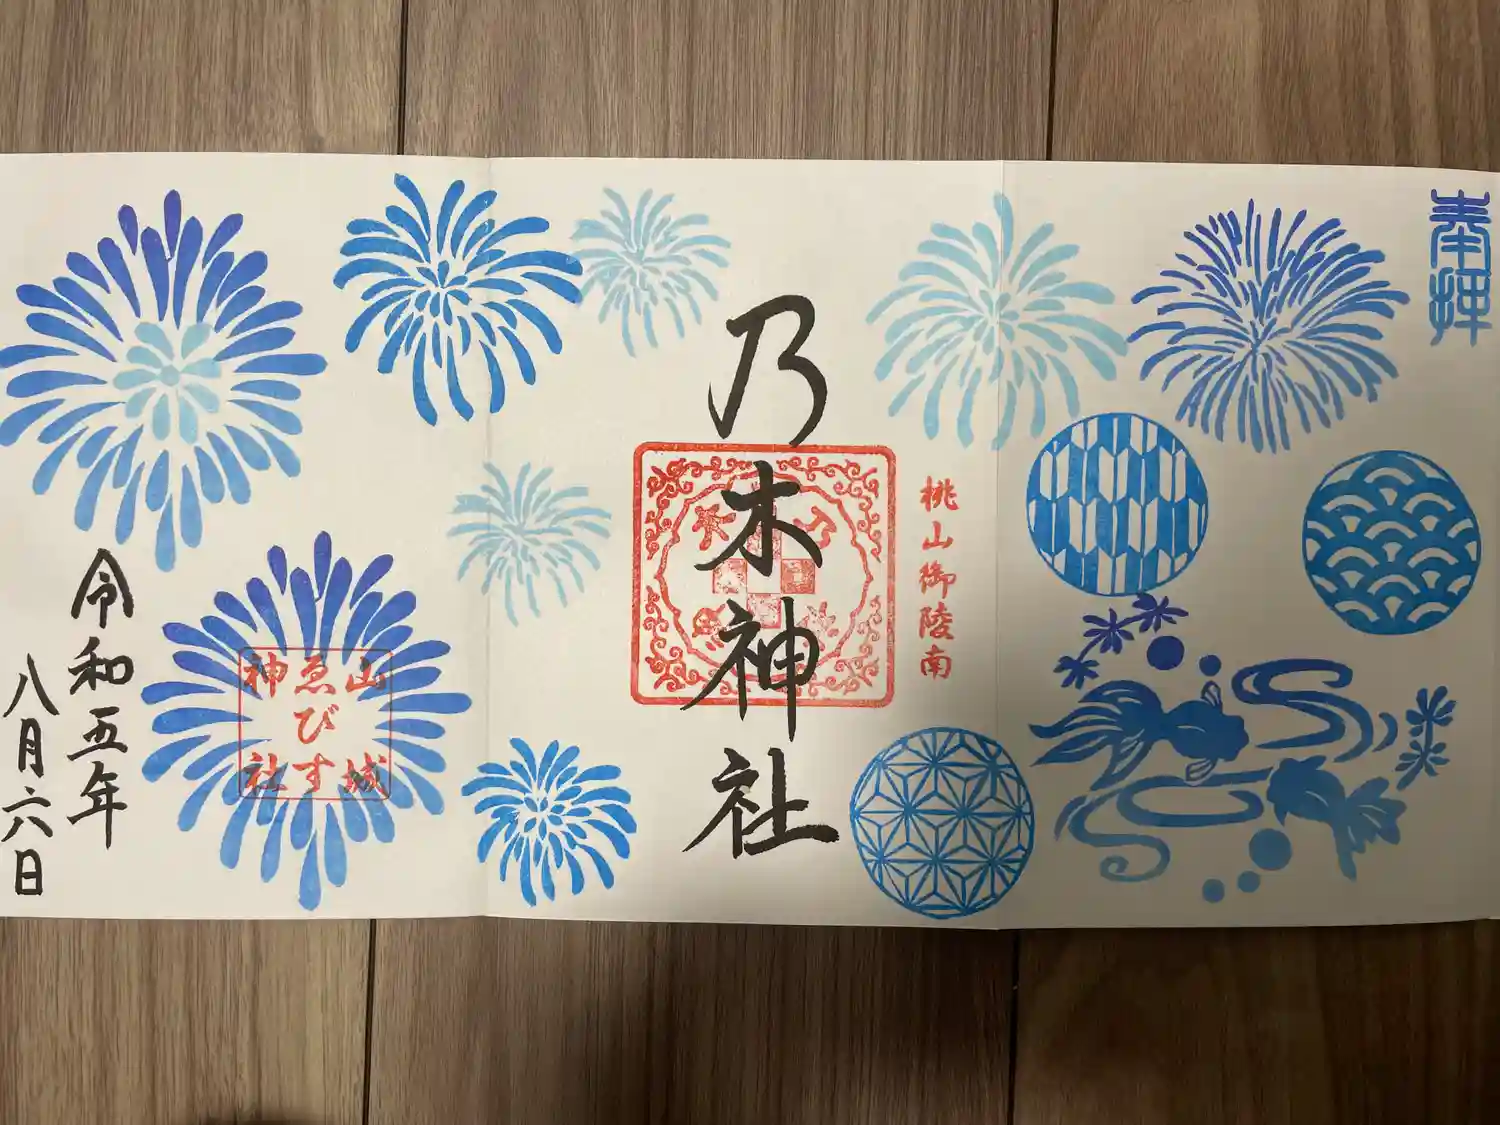 奉拝
桃山御陵南
乃木神社
乃木
山城
ゑびす
神社
令和五年
八月六日